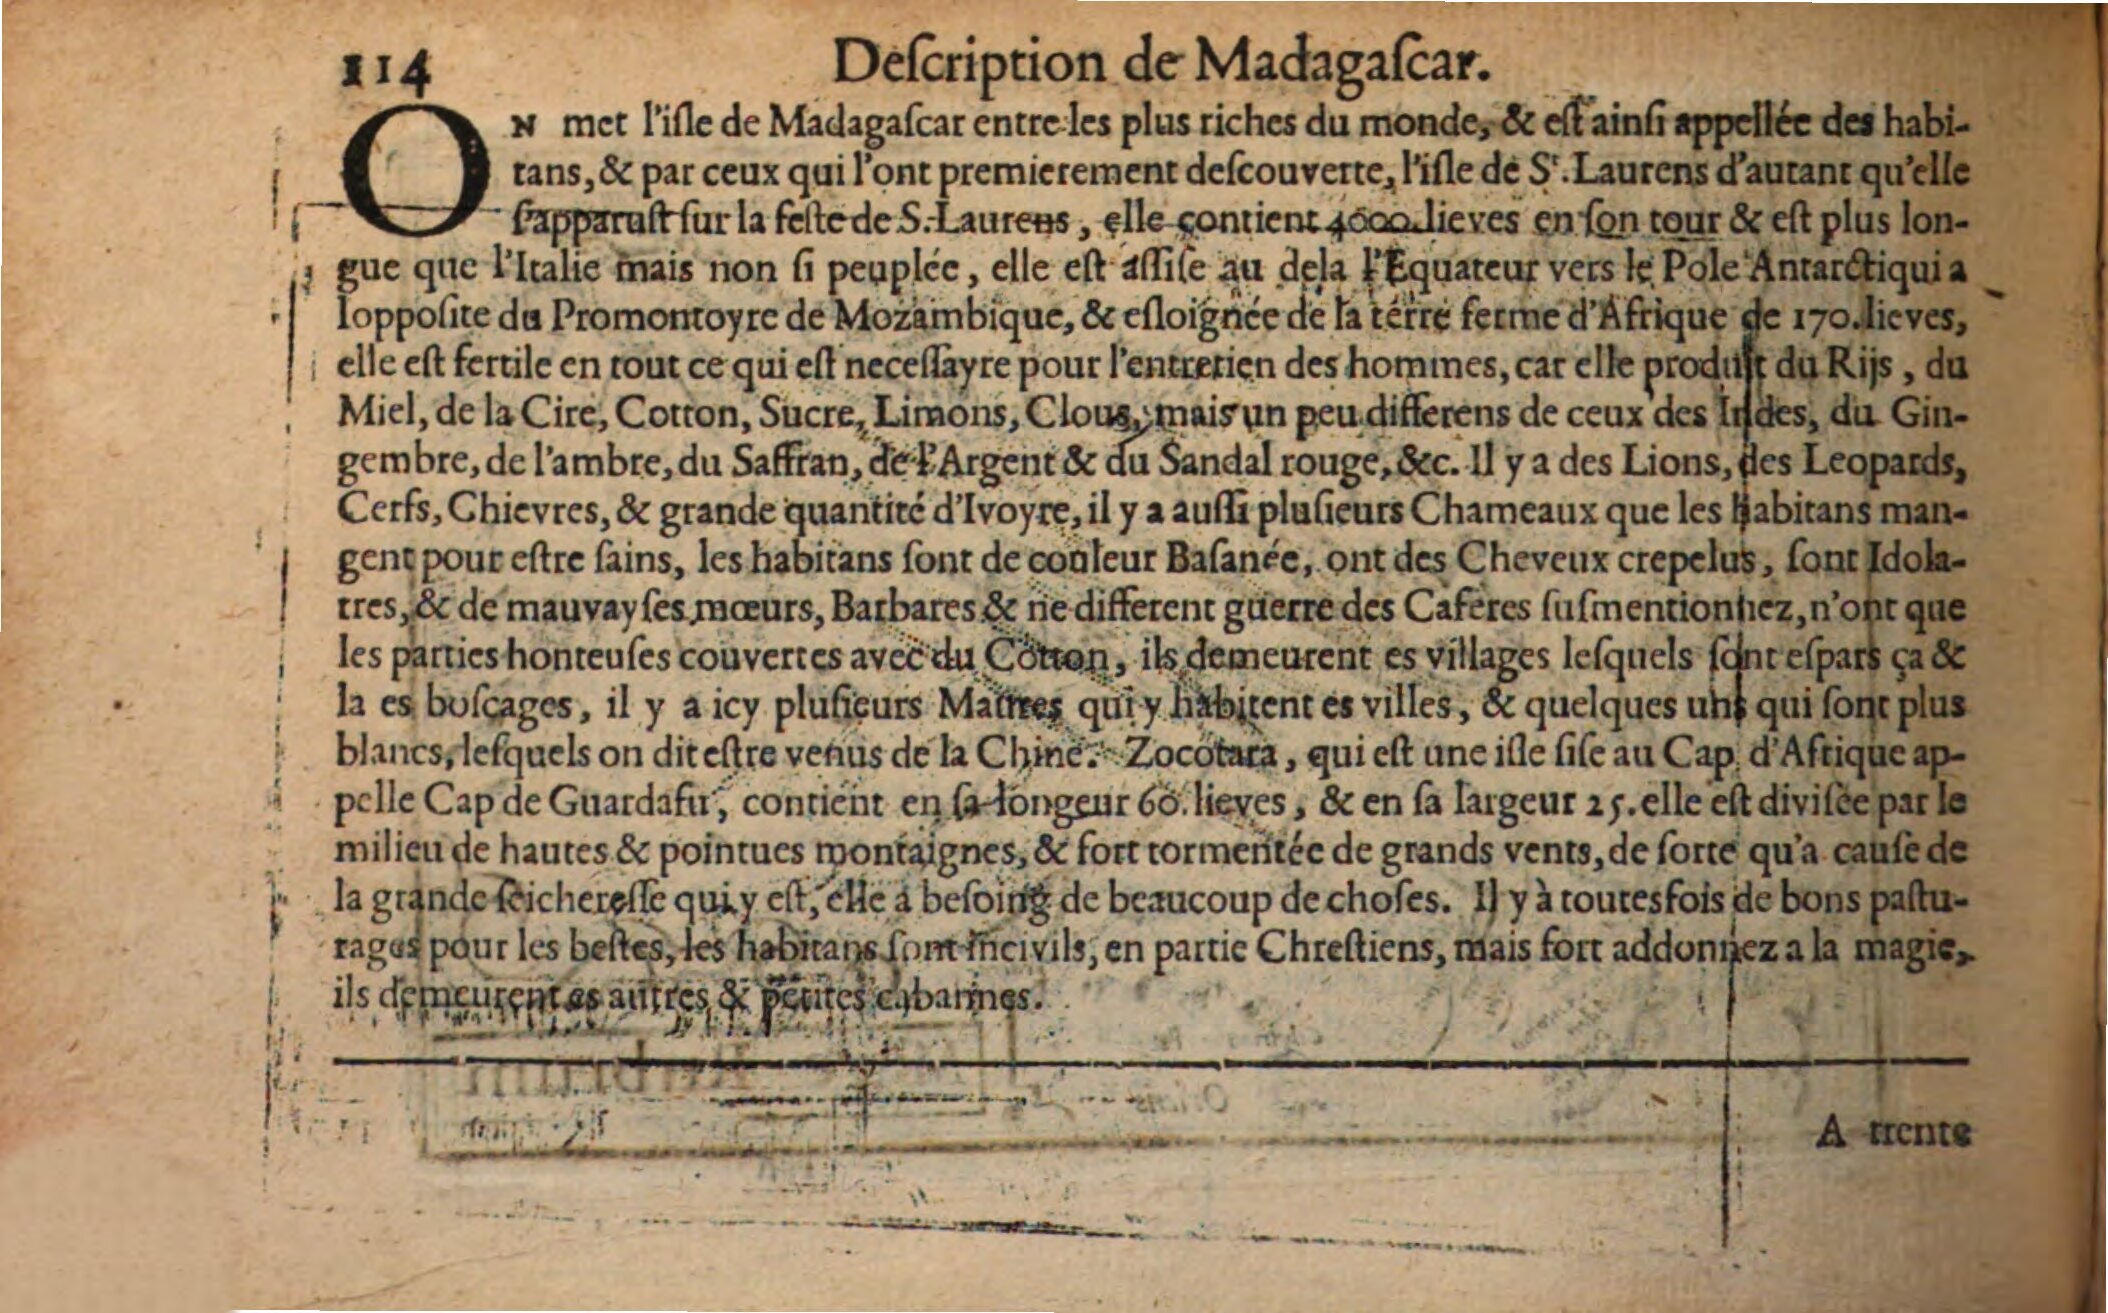 114
Deſcription de Madagaſcar.
ON met l'iſle de Madagaſcar entre les plus riches du monde, & eſt ainſi appellée des habi-
tans, & par ceux qui l'ont premierement deſcouverte, l'iſle de Sᵗ. Laurens d'autant qu'elle
ſ'apparuſt ſur la feſte de S. Laurens, elle contient 4000. lieves en ſon tour & eſt plus lon-
gue que l'Italie mais non ſi peuplée, elle eſt aſſiſe au dela l'Equateur vers le Pole Antarctiqui a
lopposite du Promontoyre de Mozambique, & eſloignée de la terre ferme d'Afrique de 170. lieves,
elle eſt fertile en tout ce qui eſt neceſſayre pour l'entretien des hommes, car elle produit du Rijs, du
Miel, de la Cire, Cotton, Sucre, Limons, Clous, mais un peu differens de ceux des Indes, du Gin-
gembre, de l'ambre, du Saffran, de l'Argent & du Sandal rouge, &c. Il y a des Lions, des Leopards,
Cerfs, Chievres, & grande quantité d'Ivoyre, il y a auſſi pluſieurs Chameaux que les habitans man-
gent pour eſtre ſains, les habitans ſont de couleur Baſanée, ont des Cheveux crepelus, ſont Idola-
tres, & de mauvayſes mœurs, Barbares & ne different guerre des Caferes ſuſmentionnez, n'ont que
les parties honteuſes couvertes avec du Cotton, ils demeurent es villages leſquels ſont eſpars ça &
la es boſcages, il y a icy pluſieurs Maures qui y habitent es villes, & quelques uns qui ſont plus
blancs, leſquels on dit eſtre venus de la Chine. Zocotara, qui eſt une iſle ſiſe au Cap d'Afrique ap-
pelle Cap de Guardafu, contient en ſa longeur 60. lieves, & en ſa largeur 25. elle eſt diviſée par le
milieu de hautes & pointues montaignes, & fort tormentée de grands vents, de ſorte qu'a cauſe de
la grande ſeichereſſe qui y eſt, elle a beſoing de beaucoup de choſes. Il y à toutesfois de bons paſtu-
rages pour les beſtes, les habitans ſont incivils, en partie Chreſtiens, mais fort addonnez a la magie,
ils demeurent es autres & petites cabannes.
A trente